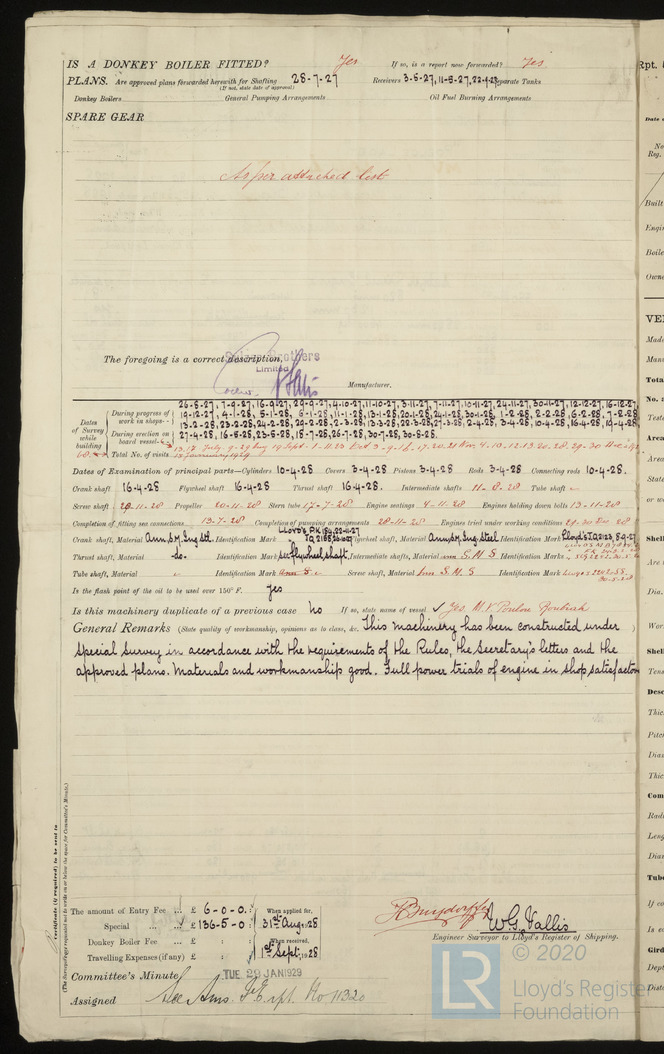 IS A DONKEY BOILER FITTED? Yes If so, is a report now forwarded? Yes
PLANS. Are approved plans forwarded herewith for Shafting 28-7-27 Receivers 3-5-27, 11-5-27, Separate Tanks
(If not, state date of approval)
Donkey Boilers General Pumping Arrangements Oil Fuel Burning Arrangements
SPARE GEAR
As per attached list
The foregoing is a correct description,
Brothers
Limited
Manufacturer.
Dates of Survey while building
During progress of work in shops--
During erection on board vessel--
Total No. of visits
26-8-27, 7-9-27, 16-9-27, 29-9-27, 4-10-27, 11-10-27, 3-11-27, 7-11-27, 10-11-27, 24-11-27, 30-11-27, 12-12-27, 16-12-27
19-12-27, 4-1-28, 5-1-28, 6-1-28, 11-1-28, 13-1-28, 20-1-28, 24-1-28, 30-1-28, 1-2-28, 2-2-28, 6-2-28, 7-2-28
13-2-28, 23-2-28, 24-2-28, 29-2-28, 2-3-28, 13-3-28, 22-3-28, 27-3-28, 2-4-28, 3-4-28, 10-4-28, 16-4-28, 19-4-28
27-4-28, 16-5-28, 23-5-28, 18-7-28, 26-7-28, 30-7-28, 30-8-28.
January 1929
Dates of Examination of principal parts—Cylinders 10-4-28 Covers 3-4-28 Pistons 3-4-28 Rods 3-4-28 Connecting rods 10-4-28.
Crank shaft 16-4-28 Flywheel shaft 16-4-28 Thrust shaft 16-4-28 Intermediate shafts 11-8-28 Tube shaft
Screw shaft 20-11-28 Propeller 20-11-28 Stern tube 17-7-28 Engine seatings 4-11-28 Engines holding down bolts 13-11-28
Completion of fitting sea connections 13-7-28 Completion of pumping arrangements 28-11-28 Engines tried under working conditions 29-30 Dec 28
Crank shaft, Material Identification Mark Flywheel shaft, Material Identification Mark
Thrust shaft, Material do. Identification Mark see flywheel shaft Intermediate shafts, Material S.M.S Identification Marks
Tube shaft, Material Identification Mark Screw shaft, Material S.M.S Identification Mark
Is the flash point of the oil to be used over 150° F. Yes
Is this machinery duplicate of a previous case No If so, state name of vessel
General Remarks (State quality of workmanship, opinions as to class, &c. This machinery has been constructed under )
special survey in accordance with the requirements of the Rules, the Secretary's letters and the
approved plans. Materials and workmanship good. Full power trials of engine in shop
Certificate (if required) to be sent to
(The Surveyors are requested not to write on or below the space for Committee's Minute.)
The amount of Entry Fee ... £ 6-0-0 : When applied for,
Special ... £ 136-5-0 : 31st Aug. 1928
Donkey Boiler Fee ... £ : : When received,
Travelling Expenses (if any) £ : : 1st Sept. 1928
W.G. Vallis
Engineer Surveyor to Lloyd's Register of Shipping.
Committee's Minute TUE 29 JAN 1929
Assigned See Ams. F.E. rpt. No 11320
© 2020
LR
Lloyd's Register
Foundation
Rpt.
Date
No
Reg.
Built
Engi
Boile
Owne
VE
Made
Man
Total
No. o
Teste
Area
Area
State
or w
Shell
Are
Dia.
Wor
Shell
Tens
Desc
Thic
Pitc
Dia
Thic
Com
Rad
Leng
Dia
Tube
If co
Is e
Gird
Dept
Dist